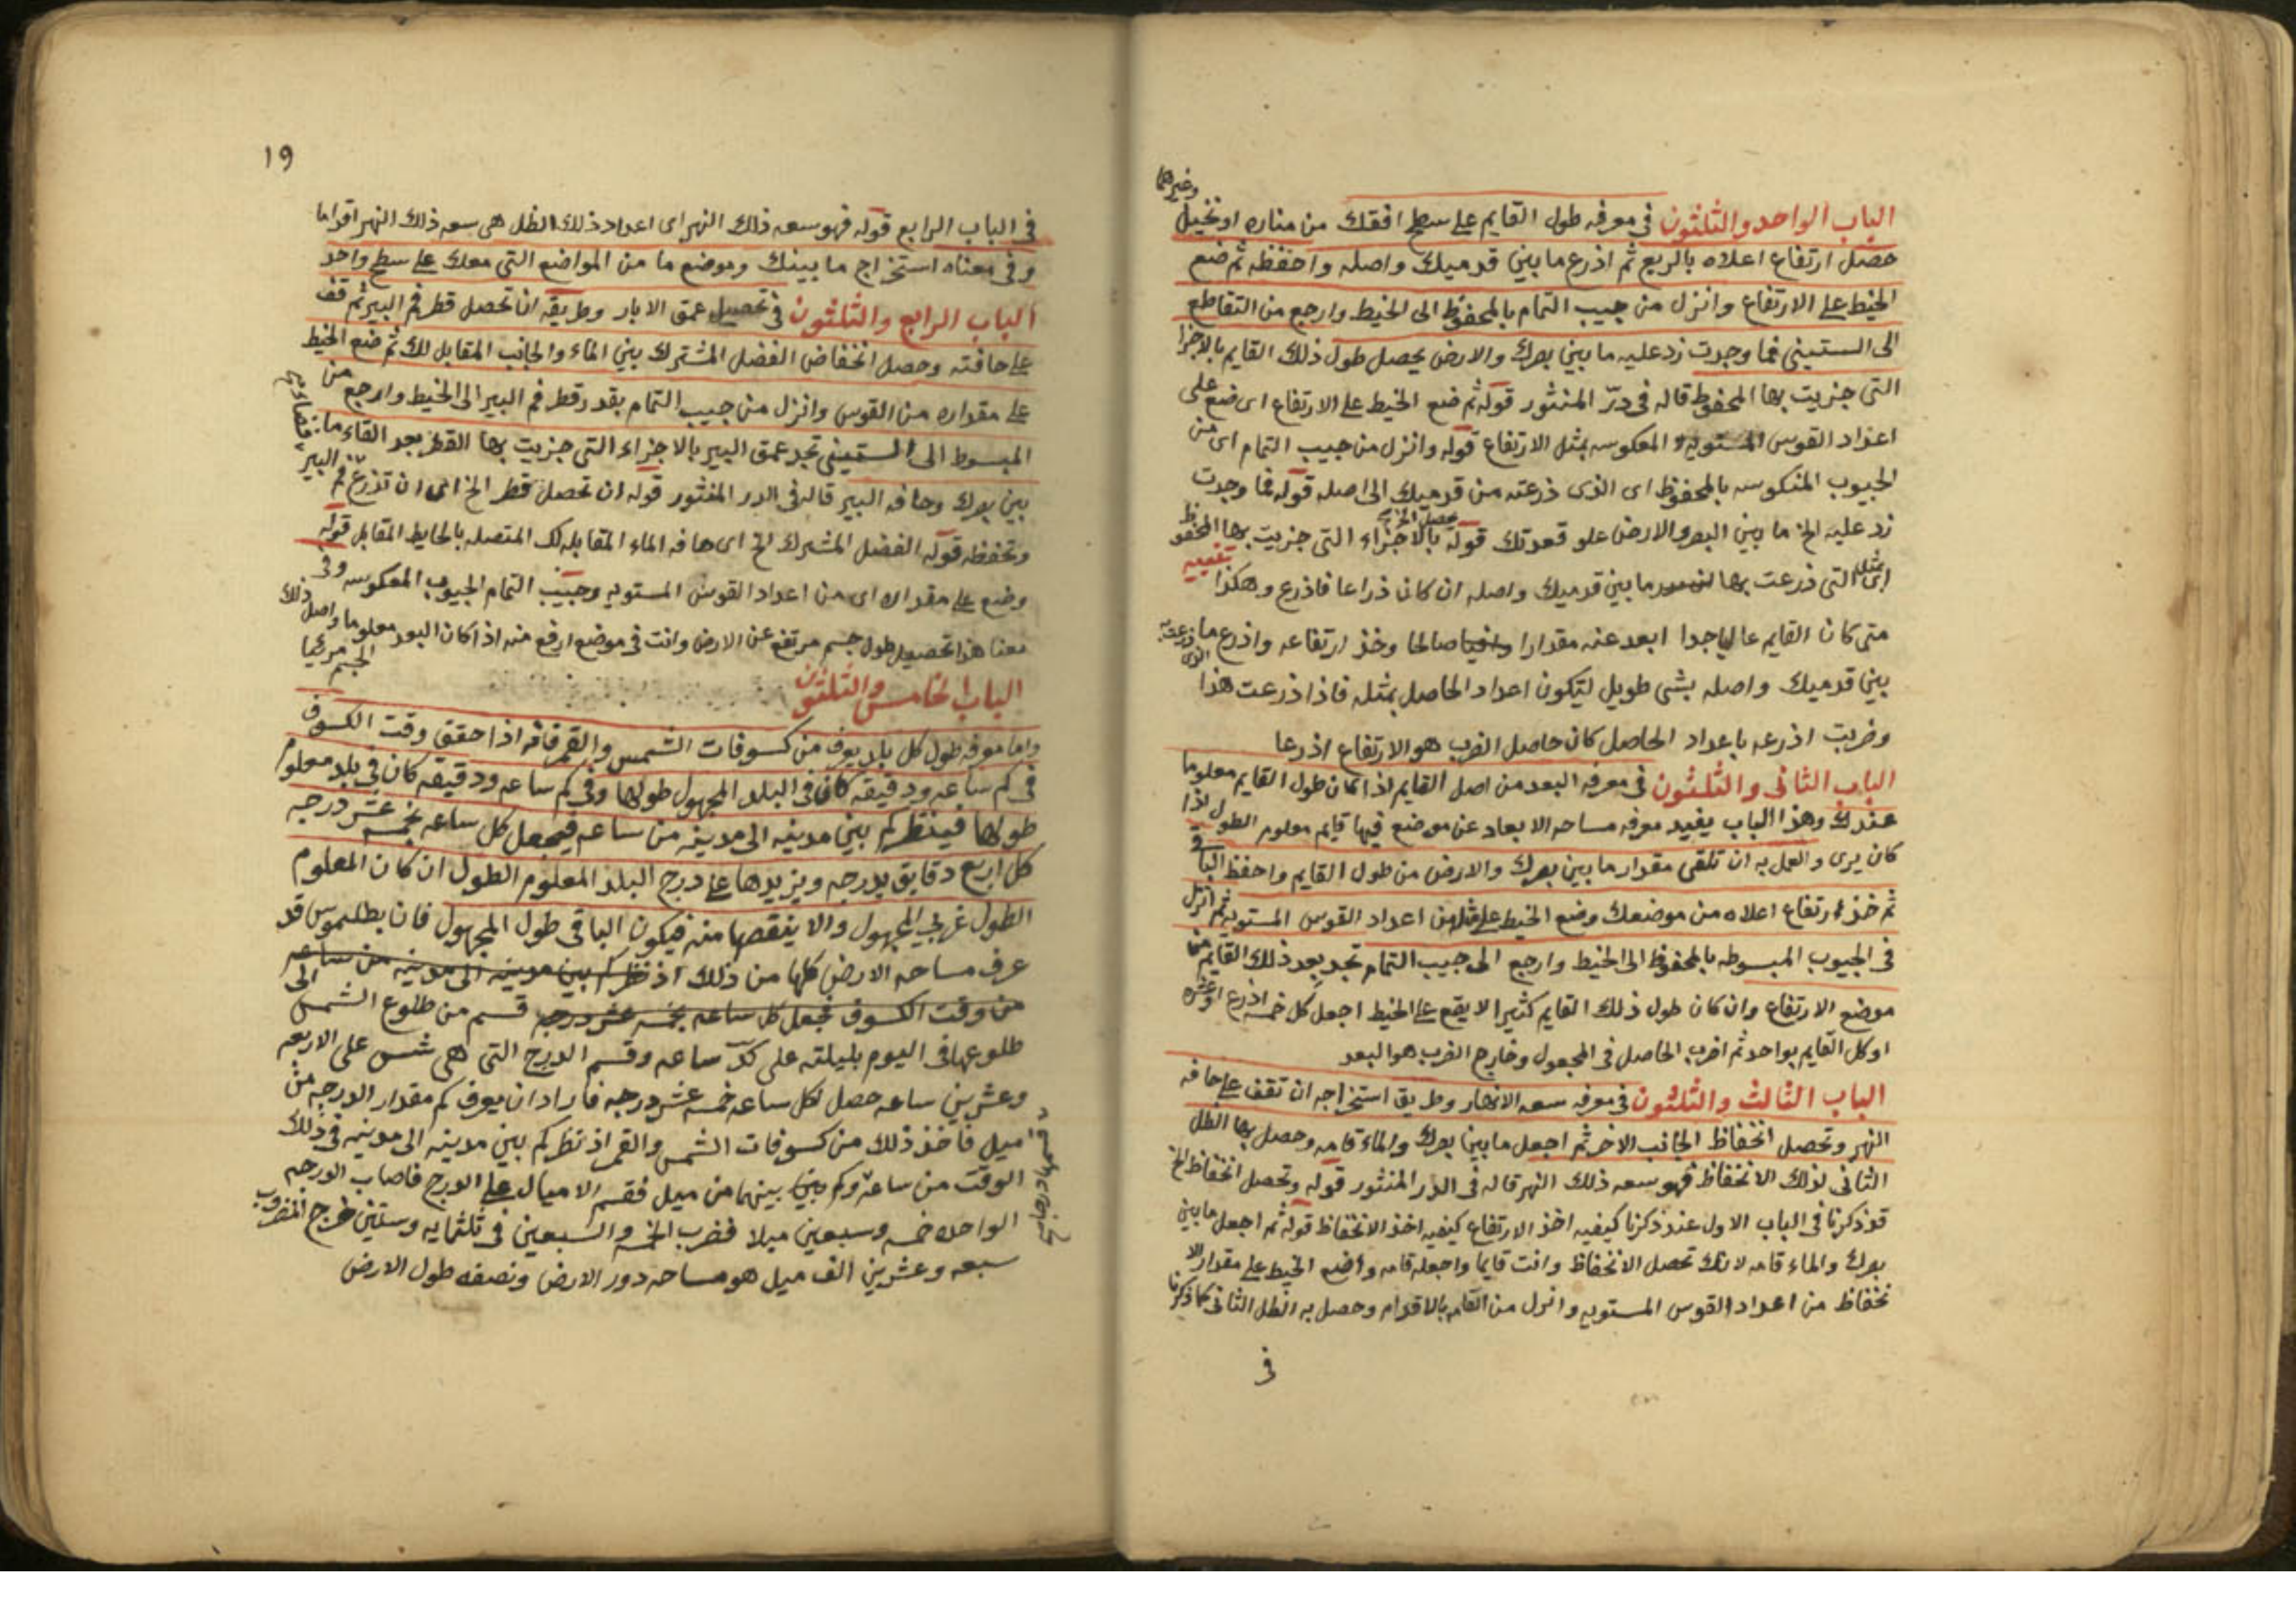 وغيرهما
الباب الواحد والثلثون في معرفه طول القايم على سطح افقك من مناره او نخيل
حصل ارتفاع اعلاه بالربع ثم اذرع ما بين قدميك واصله واحفظه ثم ضع
الخيط على الارتفاع وانزل من جيب التمام بالمحفوظ الى الخيط وارجع من التقاطع
الى الستيني فما وجدت زد عليه ما بين بصرك والارض يحصل طول ذلك القايم بالاجزا
التي جزيت بها المحفوظ قاله في درّ المنثور قوله ثم ضع الخيط على الارتفاع اى ضع على
اعداد القوس المستويه المعكوسه بمثل الارتفاع قوله وانزل من جيب التمام اى من
الجيوب المنكوسه بالمحفوظ اى الذى ذرعته من قدميك الى اصله قوله فما وجدت
زد عليه الخ ما بين البصر والارض علو قعدتك قوله بالاجزاء التي جزيت بها المحفوظ
اى بمثل التي ذرعت بها ما بين قدميك واصله ان كان ذراعا فاذرع وهكذا تنبيه
متى كان القايم عاليا جدا ابعد عنه مقدارا صالحا وخذ ارتفاعه واذرع ما
بين قدميك واصله بشى طويل ليكون اعداد الحاصل بمثله فاذا ذرعت هذا
وضربت اذرعه باعداد الحاصل كان حاصل الضرب هو الارتفاع اذرعا
الباب الثاني والثلثون في معرفه البعد من اصل القايم اذا كان طول القايم معلوما
عندك وهذا الباب يفيد معرفه مساحه الابعاد عن موضع فيها قايم معلوم الطول اذا
كان يرى والعمل به ان تلقى مقدار ما بين بصرك والارض من طول القايم واحفظ الباقي
ثم خذ ارتفاع اعلاه من موضعك وضع الخيط على مثله من اعداد القوس المستويه ثم انزل
في الجيوب المبسوطه بالمحفوظ الى الخيط وارجع الى جيب التمام تجد بعد ذلك القايم من
موضع الارتفاع وان كان طول ذلك القايم كثيرا لا يقع على الخيط اجعل كل خمسه اذرع او عشره
او كل القايم بواحد ثم اضرب الحاصل في المجعول وخارج الضرب هو البعد
الباب الثالث والثلثون في معرفه سعه الانهار وطريق استخراجه ان تقف على حافه
النهر وتحصل انخفاظ الجانب الاخر ثم اجعل ما بين بصرك والماء قامه وحصل بها الظل
الثاني لذلك الانخفاظ فهو سعه ذلك النهر قاله في الدر المنثور قوله وتحصل انخفاظ الخ
قد ذكرنا في الباب الاول عند ذكرنا كيفيه اخذ الارتفاع كيفيه اخذ الانخفاظ قوله ثم اجعل ما بين
بصرك والماء قامه لانك تحصل الانخفاظ وانت قايما واجعله قامه وضع الخيط على مقدار الا
نخفاظ من اعداد القوس المستويه وانزل من القامه بالاقدام وحصل به الظل الثاني كما ذكرنا
في
١٩
في الباب الرابع قوله فهو سعه ذلك النهر اى اعداد ذلك الظل هى سعه ذلك النهر اقداما
وفي معناه استخراج ما بينك وموضع ما من المواضع التي معك على سطح واحد
الباب الرابع والثلثون في تحصيل عمق الابار وطريقه ان تحصل قطر فم البير ثم قف
على حافته وحصل انخفاض الفضل المشترك بين الماء والجانب المقابل لك ثم ضع الخيط
على مقداره من القوس وانزل من جيب التمام بقدر قطر فم البير الى الخيط وارجع من
المبسوط الى الستيني تجد عمق البير بالاجزاء التي جزيت بها القطر بعد القاء ما
بين بصرك وحافه البير قاله في الدر المنثور قوله ان تحصل قطر الخ اى ان تذرع فم البير
وتحفظه قوله الفضل المشترك الخ اى حافه الماء المقابله لك المتصله بالحايط المقابل قوله
وضع على مقداره اى من اعداد القوس المستويه وجيب التمام الجيوب المعكوسه وفي
معنا هذا تحصيل طول جسم مرتفع عن الارض وانت في موضع ارفع منه اذا كان البعد معلوما واصل ذلك
الجسم مرئيا
الباب الخامس والثلثون
واما معرفه طول كل بلد يعرف من كسوفات الشمس والقمر فانه اذا حقق وقت الكسوف
في كم ساعه ودقيقه كان في البلد المجهول طولها وفي كم ساعه ودقيقه كان في بلد معلوم
طولها فينظر كم بين مدينه الى مدينه من ساعه فيجعل كل ساعه بخمسه عشر درجه
كل اربع دقايق بدرجه ويزيدها على درج البلد المعلوم الطول ان كان المعلوم
الطول غربي المجهول والا ينقصها منه فيكون الباقي طول المجهول فان بطلميوس قد
عرف مساحه الارض كلها من ذلك اذ نظر كم بين مدينه الى مدينه من ساعه
من وقت الكسوف فجعل كل ساعه بخمسه عشر درجه قسم من طلوع الشمس الى
طلوعها في اليوم بليلته على كد ساعه وقسم الدرج التي هى شس على الاربعه
وعشرين ساعه حصل لكل ساعه خمسه عشر درجه فاراد ان يعرف كم مقدار الدرجه من
ميل فاخذ ذلك من كسوفات الشمس والقمر اذ نظر كم بين مدينه الى مدينه في ذلك
الوقت من ساعه وكم بينهما من ميل فقسم الاميال على الدرج فاصاب الدرجه
الواحده خمسه وسبعين ميلا فضرب الخمسه والسبعين في ثلثمايه وستين خرج المضروب
سبعه وعشرين الف ميل هو مساحه دور الارض ونصفه طول الارض